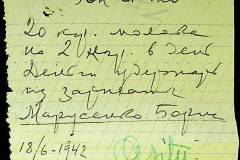 20 кур. молока
по 2 кур. в день
Деньги удержать
из зарплаты
Марусенко Борис
18/6-1942